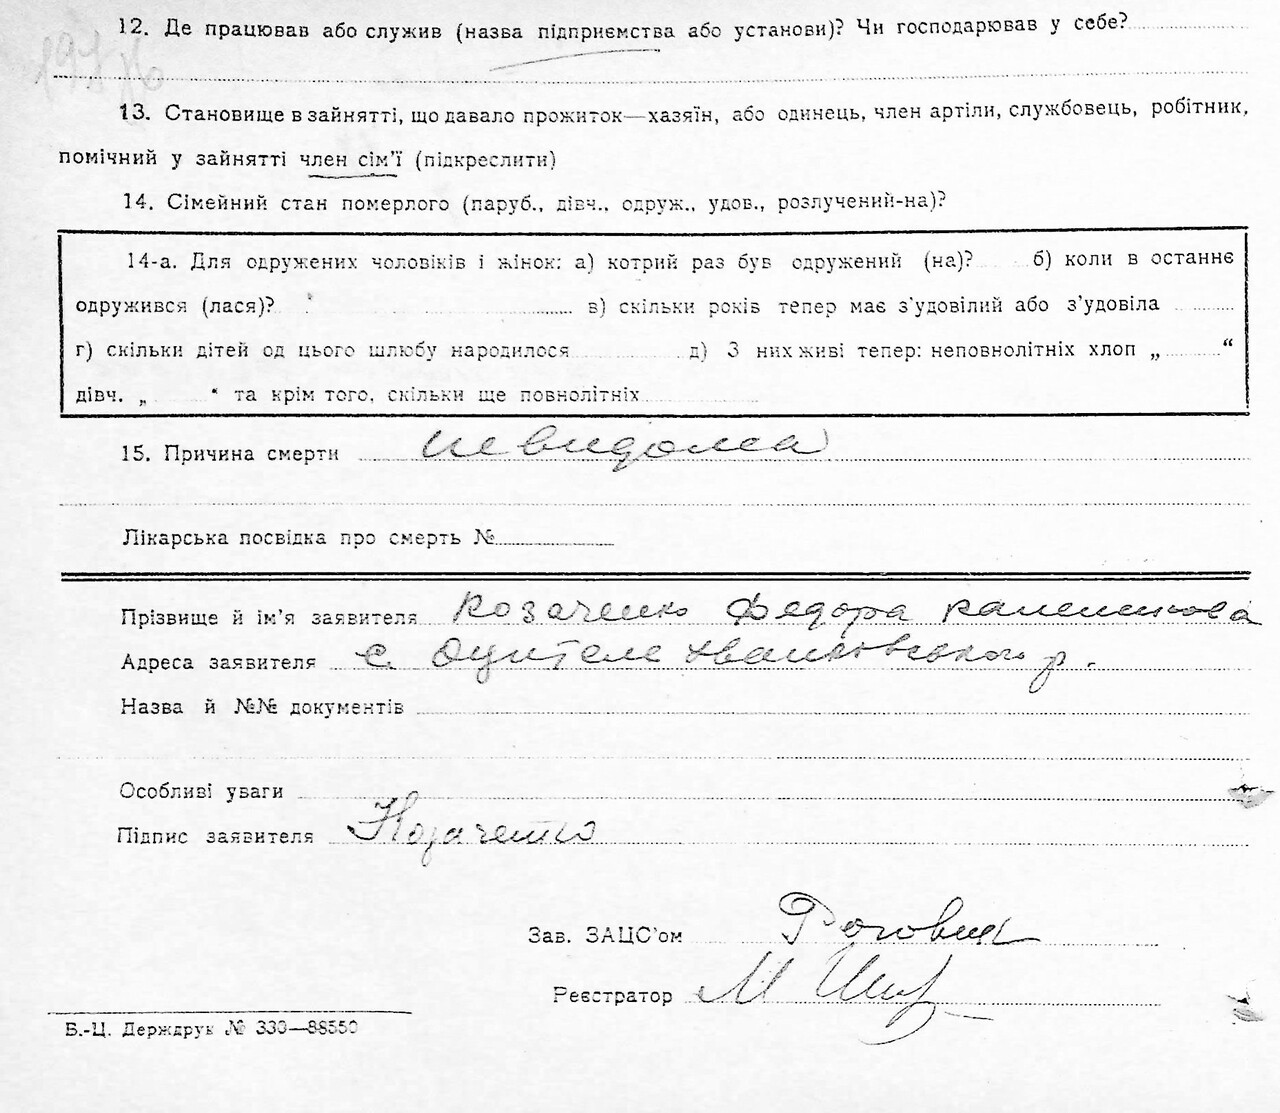 12. Де працював або служив (назва підприємства або установи)? Чи господарював у себе?
13. Становище в зайнятті, що давало прожиток—хазяїн, або одинець, член артіли, службовець, робітник,
помічний у зайнятті член сім'ї (підкреслити)
14. Сімейний стан померлого (паруб., дівч., одруж., удов., розлучений-на)?
14-а. Для одружених чоловіків і жінок: а) котрий раз був одружений (на)? б) коли в останнє
одружився (лася)? в) скільки років тепер має з'удовілий або з'удовіла
г) скільки дітей од цього шлюбу народилося д) З них живі тепер: неповнолітніх хлоп „ “
дівч. „ “ та крім того, скільки ще повнолітніх
15. Причина смерти невидома
Лікарська посвідка про смерть №
Прізвище й ім'я заявителя Козаченко Федора
Адреса заявителя с. Оцителе Іванковського р.
Назва й №№ документів
Особливі уваги
Підпис заявителя Козаченко
Зав. ЗАЦС'ом
Реєстратор М
Б.-Ц. Держдрук № 330—88550